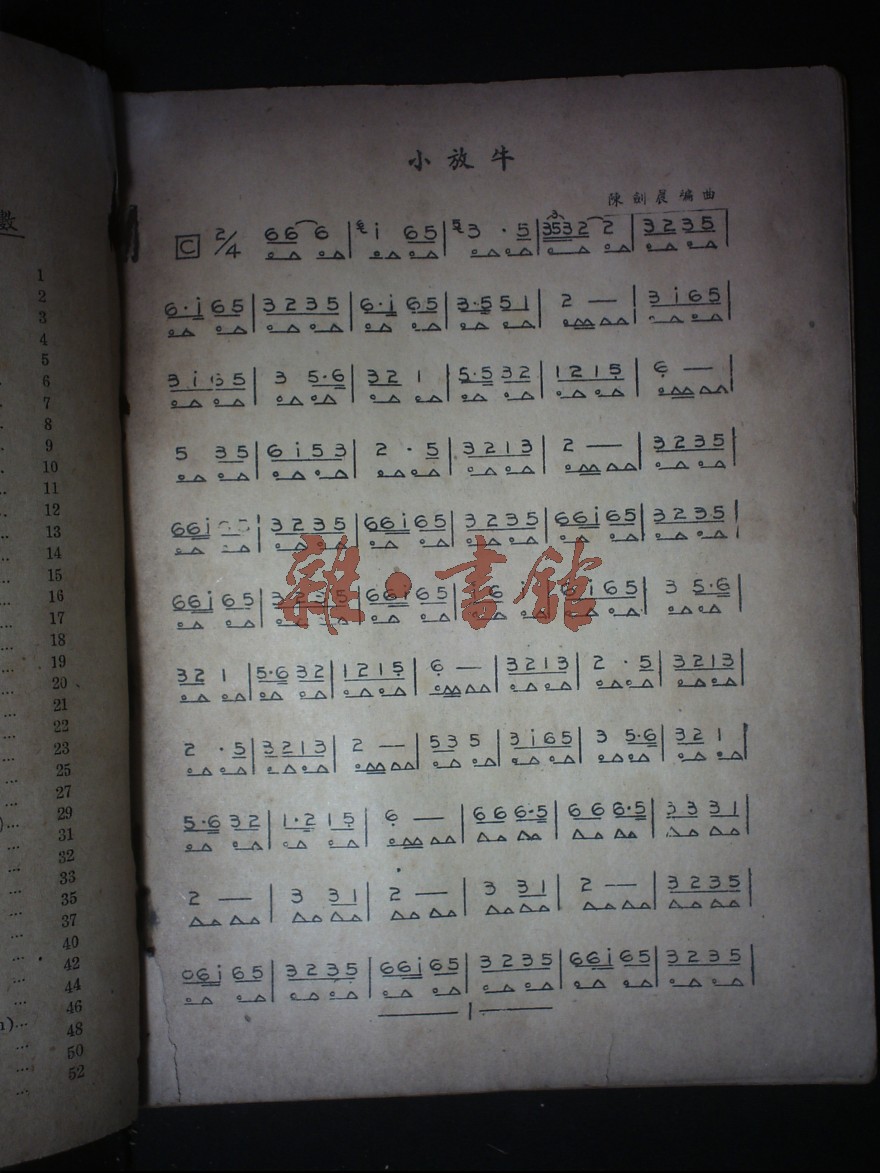 数
1
2
3
4
5
6
7
8
9
10
11
12
13
14
15
16
17
18
19
20
21
22
23
25
27
29
31
32
33
35
37
40
42
44
46
48
50
52
小放牛
陳劍晨編曲
C 2/4 66 6 | i 65 | 3 · 5 | 3532 2 | 3235 |
6·i 65 | 3235 | 6·i 65 | 3·5 51 | 2 — | 3i65 |
3i65 | 3 5·6 | 32 1 | 5·5 32 | 1215 | 6 — |
5 35 | 6i53 | 2 · 5 | 3213 | 2 — | 3235 |
66i | 3235 | 66i 65 | 3235 | 66i 65 | 3235 |
66i 65 | 3235 | 66i 65 | 6 | 6i65 | 3 5·6 |
32 1 | 5·6 32 | 1215 | 6 — | 3213 | 2 · 5 | 3213 |
2 · 5 | 3213 | 2 — | 535 | 3i65 | 3 5·6 | 32 1 |
5·6 32 | 1·2 15 | 6 — | 66 6·5 | 66 6·5 | 33 31 |
2 — | 3 31 | 2 — | 3 31 | 2 — | 3235 |
06i 65 | 3235 | 66i 65 | 3235 | 66i 65 | 3235 |
— 1 —
雜·書館